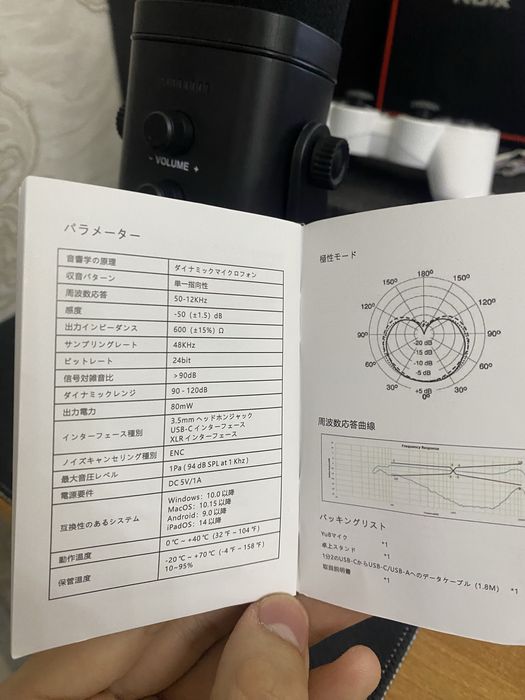 - VOLUME +
パラメーター
音響学の原理 ダイナミックマイクロフォン
収音パターン 単一指向性
周波数応答 50-12KHz
感度 -50 (±1.5) dB
出力インピーダンス 600 (±15%) Ω
サンプリングレート 48KHz
ビットレート 24bit
信号対雑音比 >90dB
ダイナミックレンジ 90 - 120dB
出力電力 80mW
インターフェース種別 3.5mm ヘッドホンジャック
USB-C インターフェース
XLR インターフェース
ノイズキャンセリング種別 ENC
最大音圧レベル 1Pa ( 94 dB SPL at 1 Khz )
電源要件 DC 5V/1A
互換性のあるシステム Windows: 10.0 以降
MacOS: 10.15 以降
Android: 9.0 以降
iPadOS: 14 以降
動作温度 0℃ ~ +40℃ (32 ℉ ~ 104℉)
保管温度 -20℃ ~ +70℃ (-4 ℉ ~ 158℉)
10~95%
極性モード
180º
150º 150º
120º 120º
90º 90º
60º 60º
30º 30º
0º
-20 dB
-15 dB
-10 dB
-5 dB
+5 dB
周波数応答曲線
Frequency Response
パッキングリスト
YuBマイク *1
卓上スタンド *1
1分2のUSB-CからUSB-C/USB-Aへのデータケーブル (1.8M) *1
取扱説明書 *1